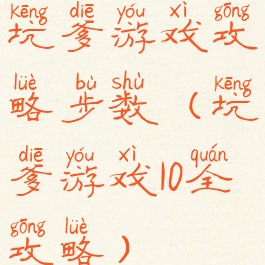 kēng diē yóu xì gōng
坑爹游戏攻
lüè bù shù kēng
略步数（坑
diē yóu xì quán
爹游戏10全
gōng lüè
攻略）